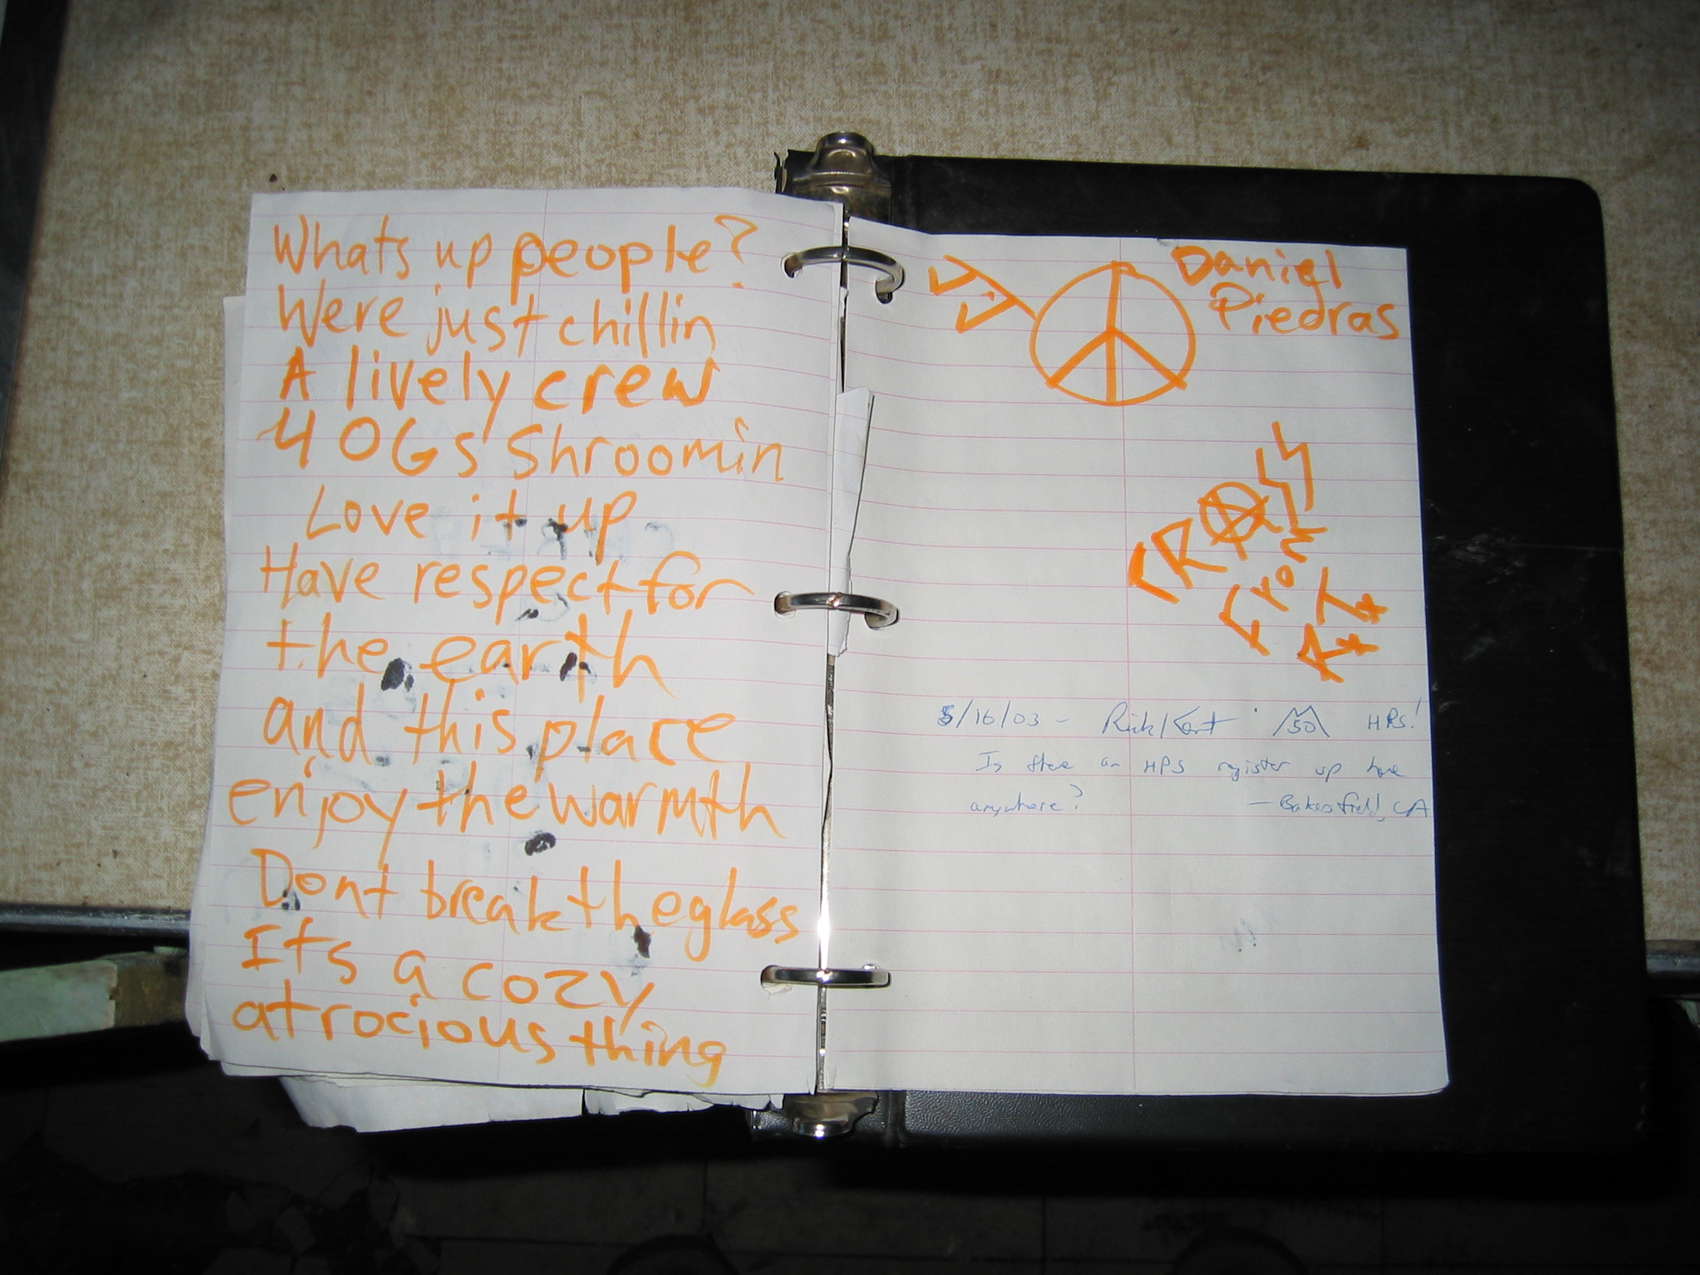 Whats up people?
Were just chillin
A lively crew
4 OGs Shroomin
Love it up
Have respect for
the earth
and this place
enjoy the warmth
Dont break the glass
It's a cozy
atrocious thing
JJ
Daniel
Piedras
CRASS
From
5/16/03 - Rick Kent 50 HPS!
Is there an HPS register up here
anywhere? - Bakersfield, CA